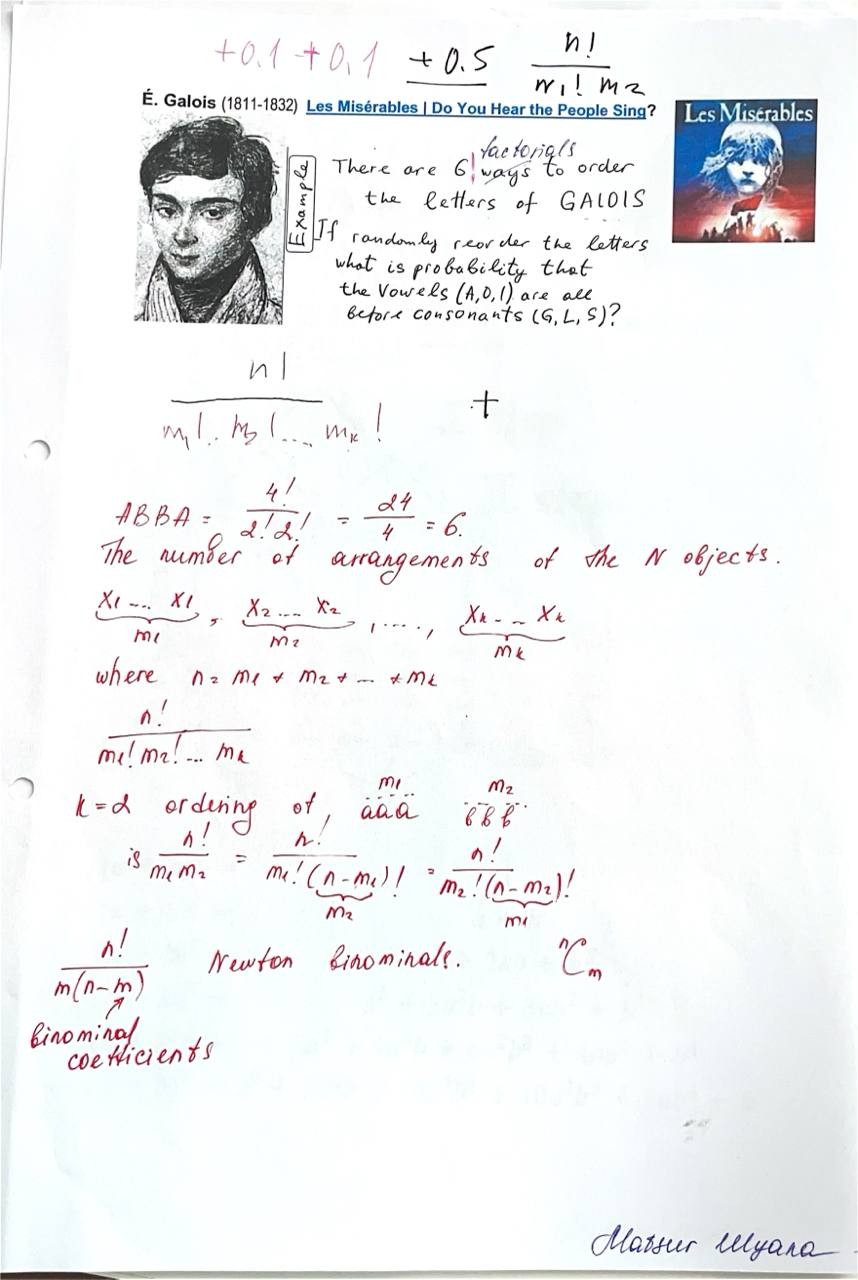 +0.1 +0.1 +0.5 n!/m₁! m₂
É. Galois (1811-1832) Les Misérables | Do You Hear the People Sing?
Les Misérables
Example
factorials
There are 6! ways to order
the letters of GALOIS
If randomly reorder the letters
what is probability that
the Vowels (A,O,I) are all
before consonants (G, L, S)?
n!/m₁!.. m₂!.... mₖ! +
ABBA = 4!/2!2! = 24/4 = 6.
The number of arrangements of the N objects.
X₁ ... X₁, X₂ ... X₂, ....., Xₖ - .. Xₖ
m₁ m₂ mₖ
where n = m₁ + m₂ + ... + mₖ
n!/m₁! m₂! ... mₖ
m₁ m₂
k=2 ordering of, a a a b b b
is n!/m₁ m₂ = n!/m₁! (n-m₁)! = n!/m₂! (n-m₂)!
m₂ m₁
n!/m(n-m) Newton binominals. ⁿCₘ
binominal
coefficients